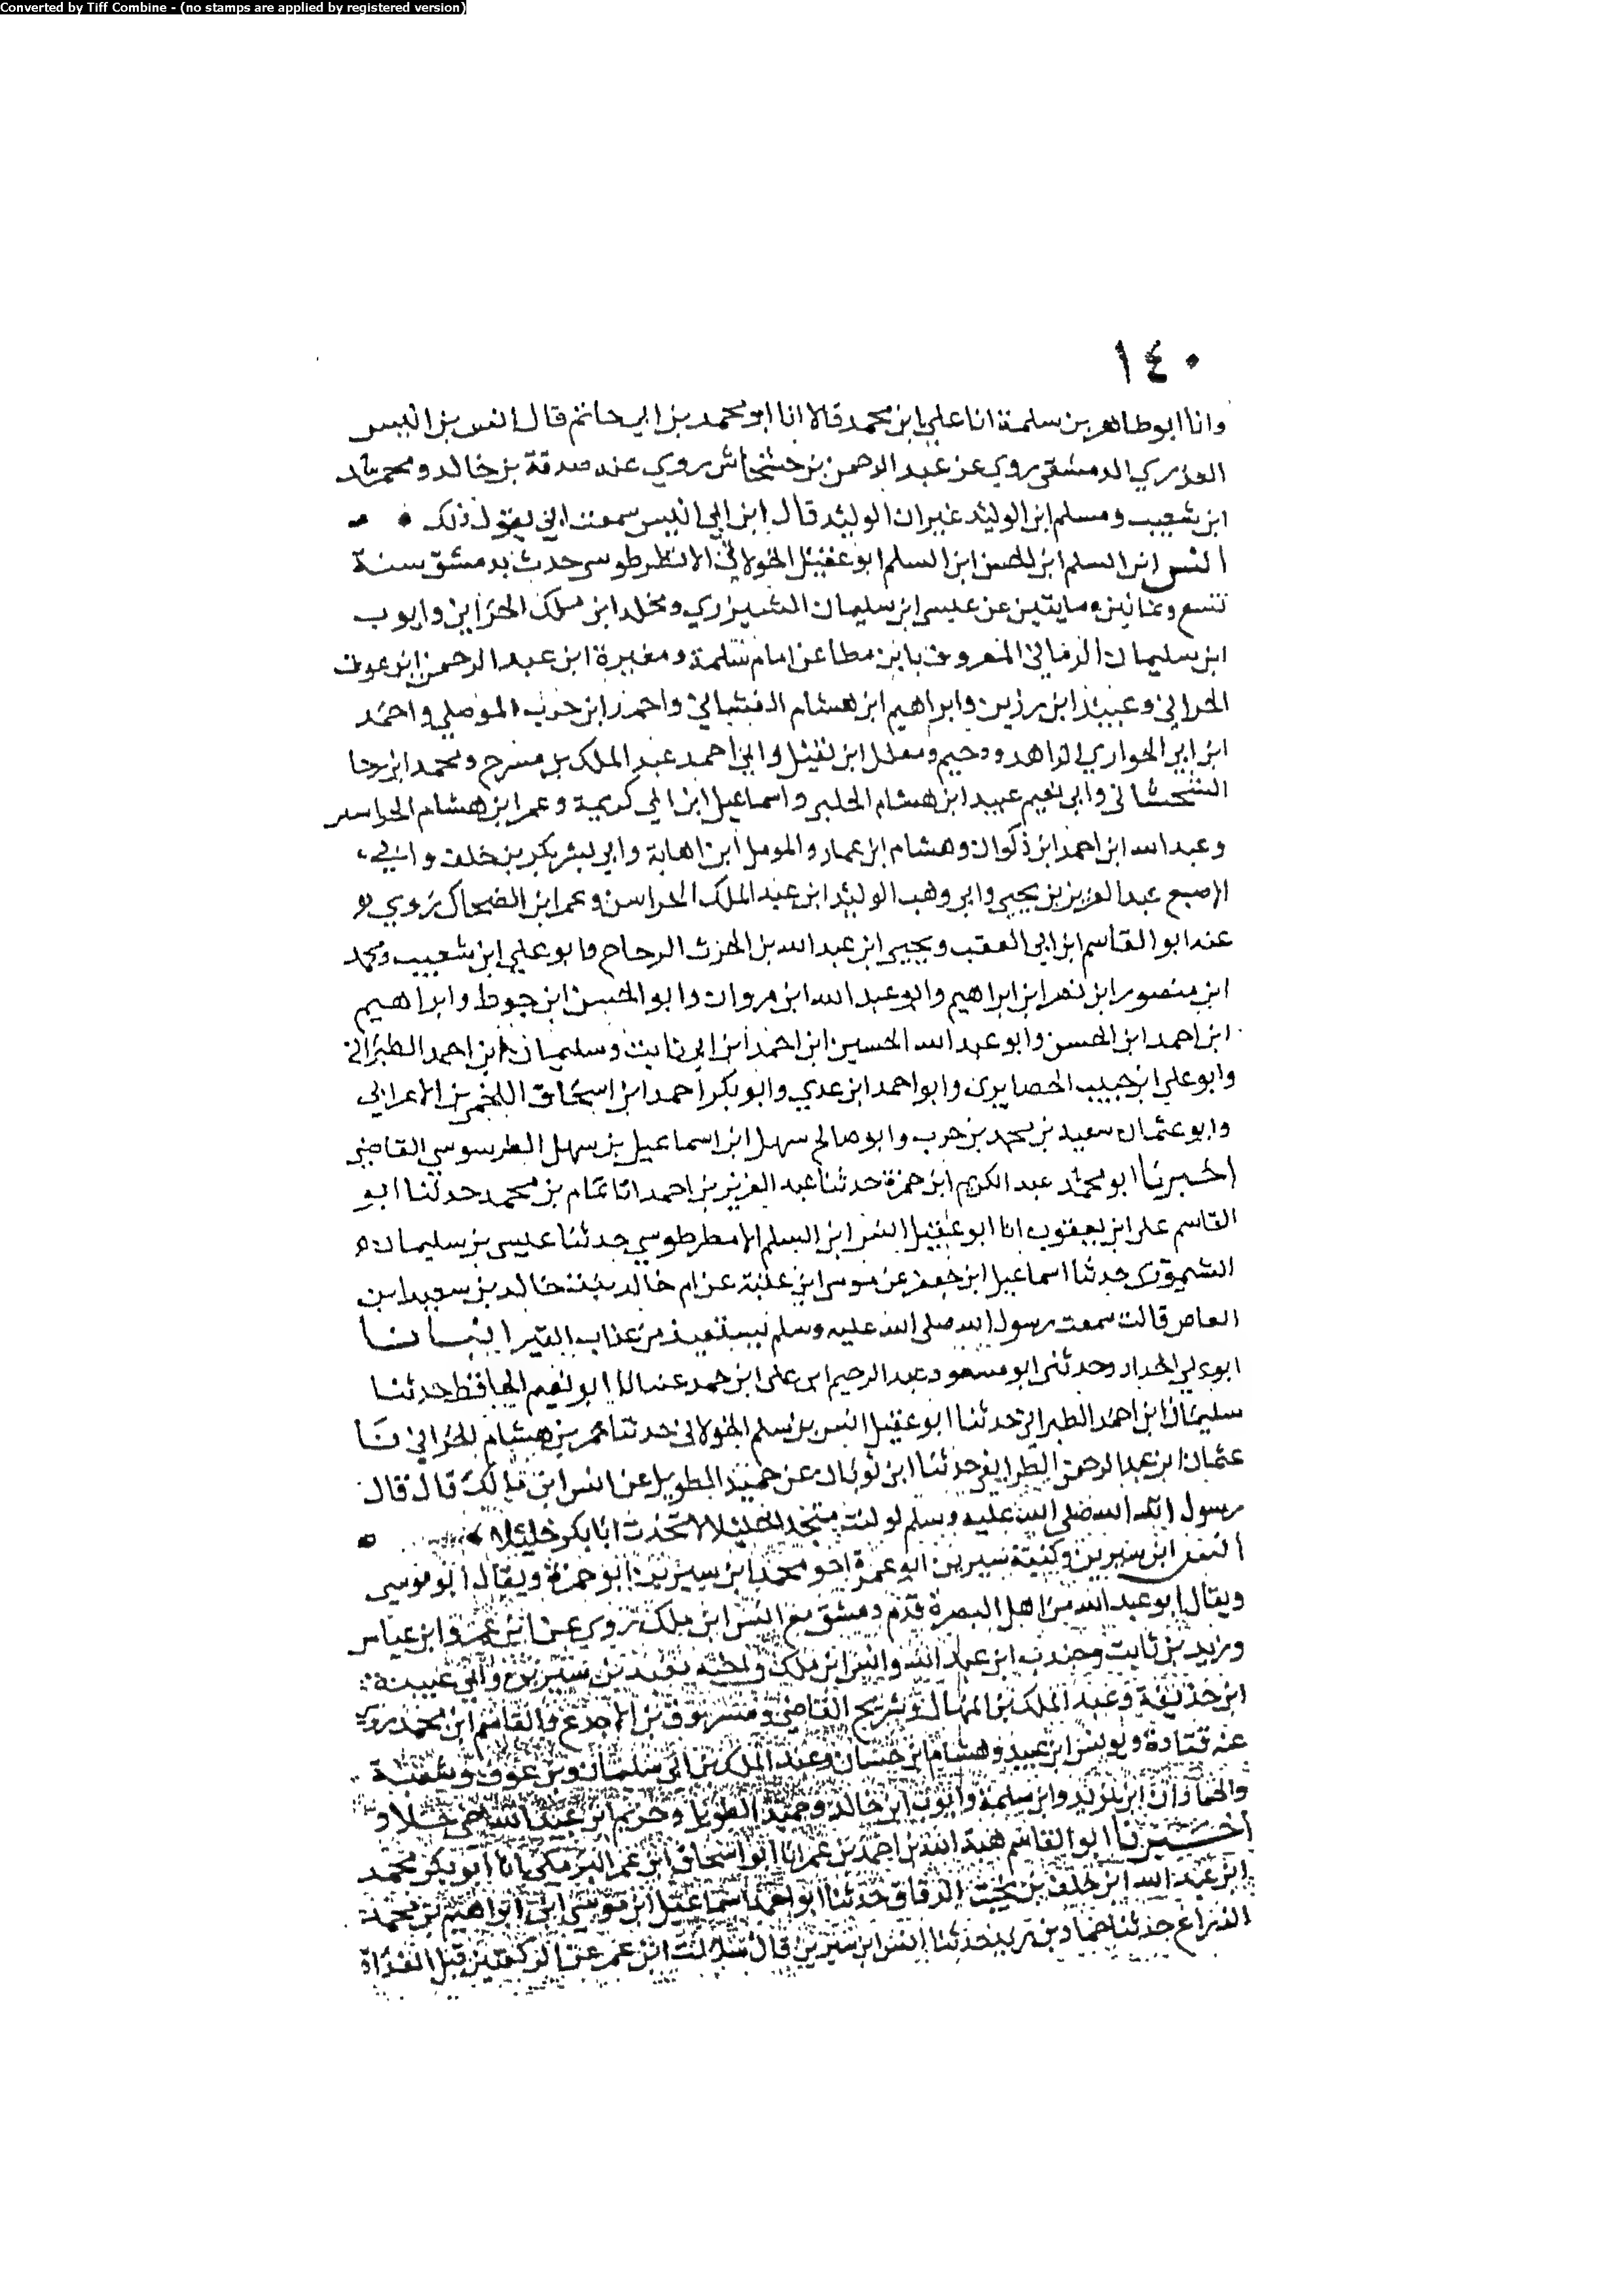 Converted by Tiff Combine - (no stamps are applied by registered version)
١٤٠
وانا ابو طاهر بن سلمة انا علي ابن محمد قالا انا ابو محمد بن ابي حاتم قال انس بن انيس
العذري الدمشقي روي عن عبد الرحمن بن خشخاش روي عنه صدقة بن خالد ومحمد
ابن شعيب ومسلم ابن الوليد غير ان الوليد قال ابن ابي انيس سمعت ابي يقول ذلك
انس ابن السلم ابن الحسن ابن السلم ابو عقيل الخولاني الانطرطوسي حدث بدمشق سنة
تسع وثمانين ومايتين عن عيسى ابن سليمان الشيزري ومخلد ابن ملك الحراني وايوب
ابن سليمان المعروف بابن مطاعن امام سلمة ومغيرة ابن عبد الرحمن ابن عوف
الحراني وعبيد ابن رزين وابراهيم ابن هشام الغساني واحمد ابن حرب الموصلي واحمد
ابن ابي الحواري الزاهد ودحيم ومعلل ابن نفيل وابي احمد عبد الملك بن مسرح ومحمد ابن رجا
وابي نعيم عبيد ابن هشام الحلبي واسماعيل ابن ابي كريمة وعمر ابن هشام
وعبد الله ابن احمد ابن ذكوان وهشام ابن عمار والمومل ابن اهابة وابي بشر بكر بن خلف وابي
الاصبع عبد العزيز بن يحيى وابو وهب الوليد ابن عبد الملك وعمر ابن الضحاك روي
عنه ابو القاسم ابن ابي العقب ويحيى ابن عبد الله بن الحرث الزجاج وابو علي ابن شعيب ومحمد
ابن منصور ابن نصر ابن ابراهيم وابو عبد الله ابن مروان وابو الحسن ابن جوط وابراهيم
ابن احمد ابن الحسن وابو عبد الله الحسين ابن احمد ابن ابي ثابت وسليمان ابن احمد الطبراني
وابو علي ابن حبيب الحصايري وابو احمد ابن عدي وابو بكر احمد ابن اسحاق اللخمي بن الاعرابي
وابو عثمان سعيد بن محمد بن حرب وابو صالح سهل ابن اسماعيل بن سهل الطرسوسي القاضي
اخبرنا ابو محمد عبد الكريم ابن حمزة حدثنا عبد العزيز بن احمد انا تمام بن محمد حدثنا ابو
القاسم علي ابن يعقوب انا ابو عقيل انس ابن السلم الانطرطوسي حدثنا عيسى بن سليمان
حدثنا اسماعيل ابن جعفر عن موسى ابن عقبة عن ام خالد بنت خالد بن سعيد ابن
العاص قالت سمعت رسول الله صلى الله عليه وسلم يستعيذ من عذاب القبر انبانا
ابو علي الحداد وحدثني ابو مسعود عبد الرحيم ابن علي ابن حمد عنه انا ابو نعيم الحافظ حدثنا
سليمان ابن احمد الطبراني حدثنا ابو عقيل انس بن سلم الخولاني حدثنا عمر بن هشام الحراني نا
عثمان ابن عبد الرحمن الطرايفي حدثنا ابن ثوبان عن حميد الطويل عن انس ابن مالك قال قال
رسول الله صلى الله عليه وسلم لو كنت متخذا خليلا لاتخذت ابا بكر خليلا
انس ابن سيرين وكنية سيرين ابو عمرة اخو محمد ابن سيرين ابو حمزة ويقال ابو موسى
ويقال ابو عبد الله من اهل البصرة قدم دمشق مع انس ابن ملك روي عن ابن عمر وابن عباس
وزيد بن ثابت وجندب ابن عبد الله وانس ابن ملك واخته بن سيرين وابي عبيدة
ابن حذيفة وعبد الملك بن المنهال وشريح القاضي ومسروق بن الاجدع والقاسم ابن محمد روي
عنه قتادة ويونس ابن عبيد وهشام ابن حسان وعبد الملك بن ابي سليمان وبن عون وشعبة
والحمادان ابن زيد وابن سلمة وايوب ابن خالد وحميد الطويل
اخبرنا ابو القاسم هبة الله بن احمد بن عمر انا ابو اسحاق ابن عمر البرمكي انا ابو بكر محمد
ابن عبد الله ابن خلف بن بخيت الدقاق حدثنا ابو احمد اسماعيل ابن موسى ابن ابراهيم بن محمد
حدثنا حماد بن زيد حدثنا انس ابن سيرين قال سالت ابن عمر عن الركعتين قبل الغداة